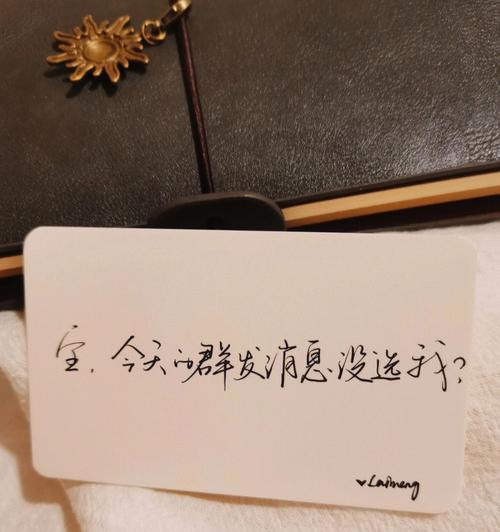 宝.今天的群发消息没选我?
♥Laimeng